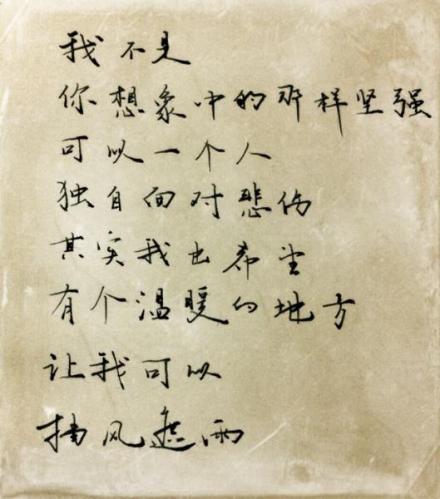 我不是
你想象中的那样坚强
可以一个人
独自面对悲伤
其实我也希望
有个温暖的地方
让我可以
挡风遮雨